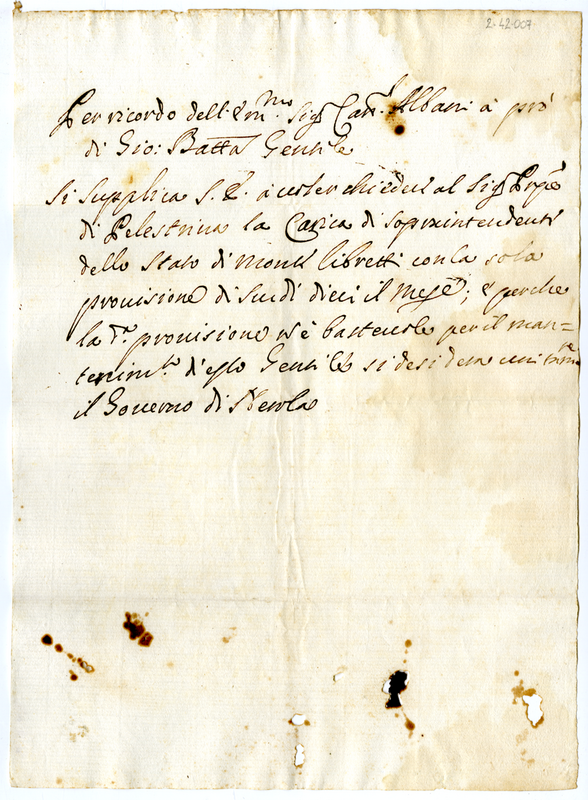 2-42-007
Per ricordo dell'Em.mo Sig.r Car.l Albani à prò
di Gio: Batta Gentile
Si supplica S. E. à uoler chieder al Sig.r Prnpe
di Pelestrina la Carica di sopraintendenti
dello Stato di Monte libretti con la sola
prouisione di scudi dieci il Mese; e perche
la d.a prouisione n'è basteuole per il man=
tenim.to d'esso Gentile si desidera unitam.te
il Gouerno di Nerola